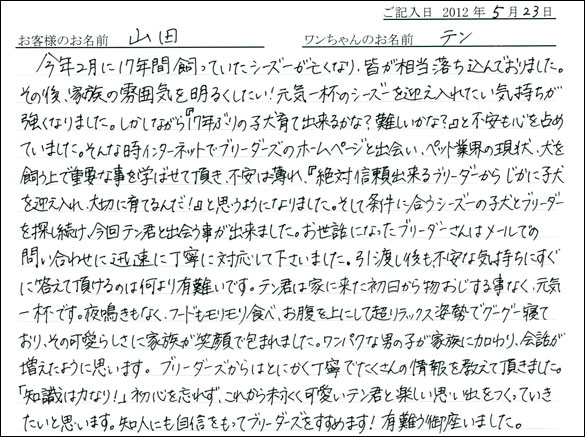 ご記入日 2012 年 5 月 23 日
お客様のお名前 山田 ワンちゃんのお名前 テン
今年2月に17年間飼っていたシーズーが亡くなり、皆が相当落ち込んでおりました。
その後、家族の雰囲気を明るくしたい!元気一杯のシーズーを迎え入れたい気持ちが
強くなりました。しかしながら『17年ぶりの子犬育て出来るかな?難しいかな?』と不安も心を占め
ていました。そんな時インターネットでブリーダーズのホームページと出会い、ペット業界の現状、犬を
飼う上で重要な事を学ばせて頂き、不安は薄れ、『絶対信頼出来るブリーダーからじかに子犬
を迎え入れ、大切に育てるんだ!』と思うようになりました。そして条件に合うシーズーの子犬とブリーダー
を探し続け、今回テン君と出会う事が出来ました。お世話になったブリーダーさんはメールでの
問い合わせに迅速に丁寧に対応して下さいました。引き渡し後も不安な気持ちにすぐ
に答えて頂けるのは何より有難いです。テン君は家に来た初日から物おじする事なく、元気
一杯です。夜鳴きもなく、フードもモリモリ食べ、お腹を上にして超リラックス姿勢でグーグー寝て
おり、その可愛らしさに家族が笑顔で包まれました。ワンパクな男の子が家族に加わり、会話が
増えたように思います。ブリーダーズからはとにかく丁寧でたくさんの情報を教えて頂きました。
「知識は力なり!」初心を忘れず、これから末永く可愛いテン君と楽しい思い出をつくっていき
たいと思います。知人にも自信をもってブリーダーズをすすめます!有難う御座いました。